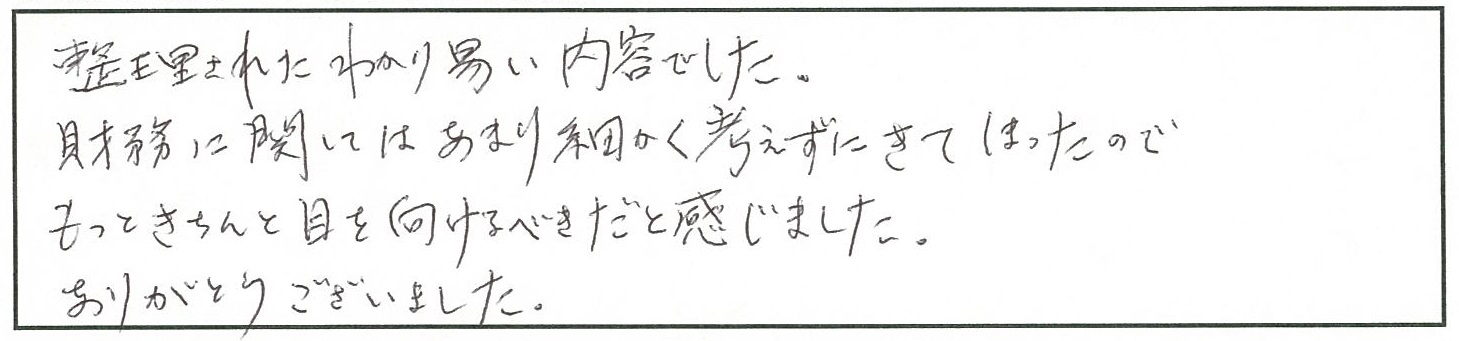 整理されたわかり易い内容でした。
財務に関してはあまり細かく考えずにきてしまったので
もっときちんと目を向けるべきだと感じました。
ありがとうございました。